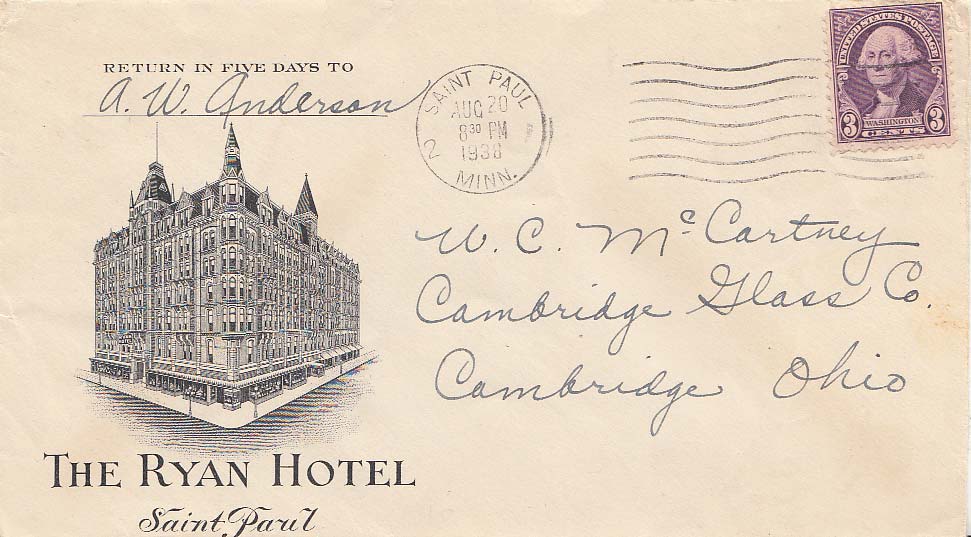 RETURN IN FIVE DAYS TO
A. W. Anderson
SAINT PAUL
AUG 20
8 30 PM
1938
2 MINN.
UNITED STATES POSTAGE
WASHINGTON
3 CENTS 3
W. C. Mc Cartney
Cambridge Glass Co.
Cambridge Ohio
THE RYAN HOTEL
Saint Paul